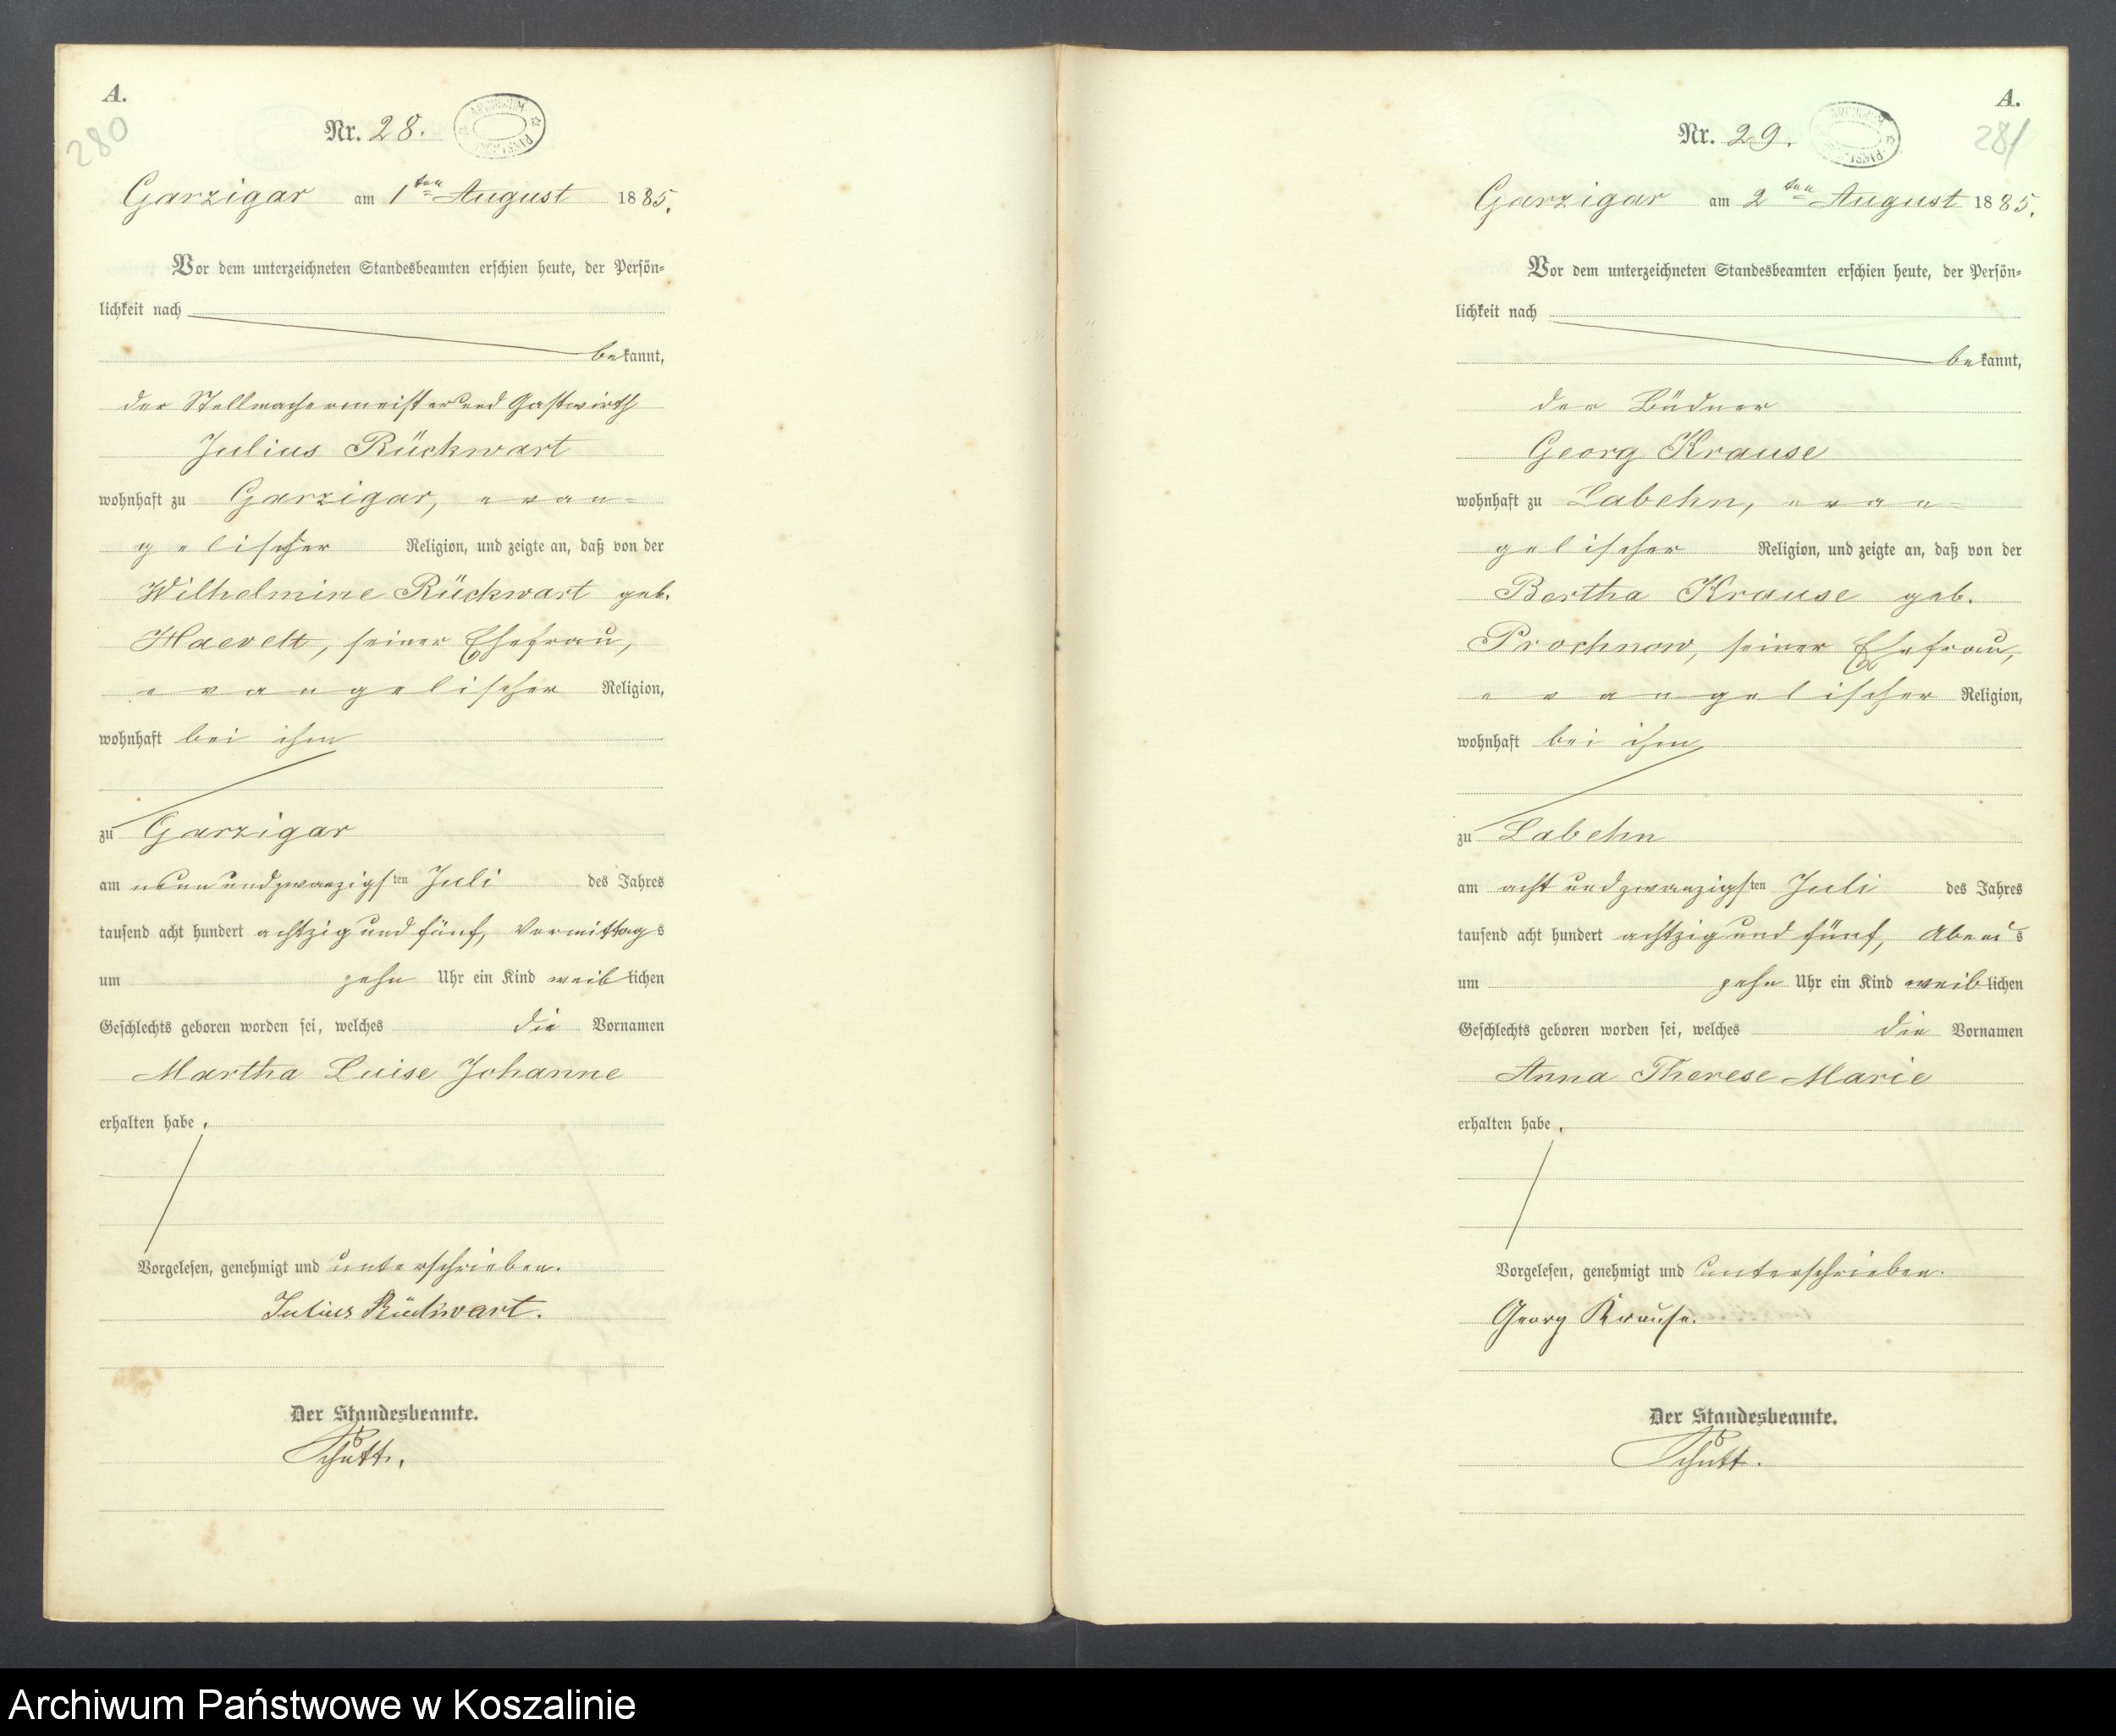 A.
280
Nr. 28.
ARCHIWUM PAŃSTW
Garzigar am 1ten August 1885.
Vor dem unterzeichneten Standesbeamten erschien heute, der Persön-
lichkeit nach
bekannt,
der Stellmachermeister und Gastwirth
Julius Rückwart
wohnhaft zu Garzigar, evan-
gelischer Religion, und zeigte an, daß von der
Wilhelmine Rückwart geb.
Haevelt, seiner Ehefrau,
evangelischer Religion,
wohnhaft bei ihm
zu Garzigar
am neunundzwanzigsten Juli des Jahres
tausend acht hundert achtzig und fünf, Vormittags
um zehn Uhr ein Kind weiblichen
Geschlechts geboren worden sei, welches die Vornamen
Martha Luise Johanne
erhalten habe.
Vorgelesen, genehmigt und unterschrieben.
Julius Rückwart.
Der Standesbeamte.
Schütt.
A.
281
Nr. 29.
Garzigar am 2ten August 1885.
Vor dem unterzeichneten Standesbeamten erschien heute, der Persön-
lichkeit nach
bekannt,
der Büdner
Georg Krause
wohnhaft zu Labehn, evan-
gelischer Religion, und zeigte an, daß von der
Bertha Krause geb.
Prochnow, seiner Ehefrau,
evangelischer Religion,
wohnhaft bei ihm
zu Labehn
am acht und zwanzigsten Juli des Jahres
tausend acht hundert achtzig und fünf, Abends
um zehn Uhr ein Kind weiblichen
Geschlechts geboren worden sei, welches die Vornamen
Anna Therese Marie
erhalten habe.
Vorgelesen, genehmigt und unterschrieben.
Georg Krause.
Der Standesbeamte.
Schütt.
Archiwum Państwowe w Koszalinie